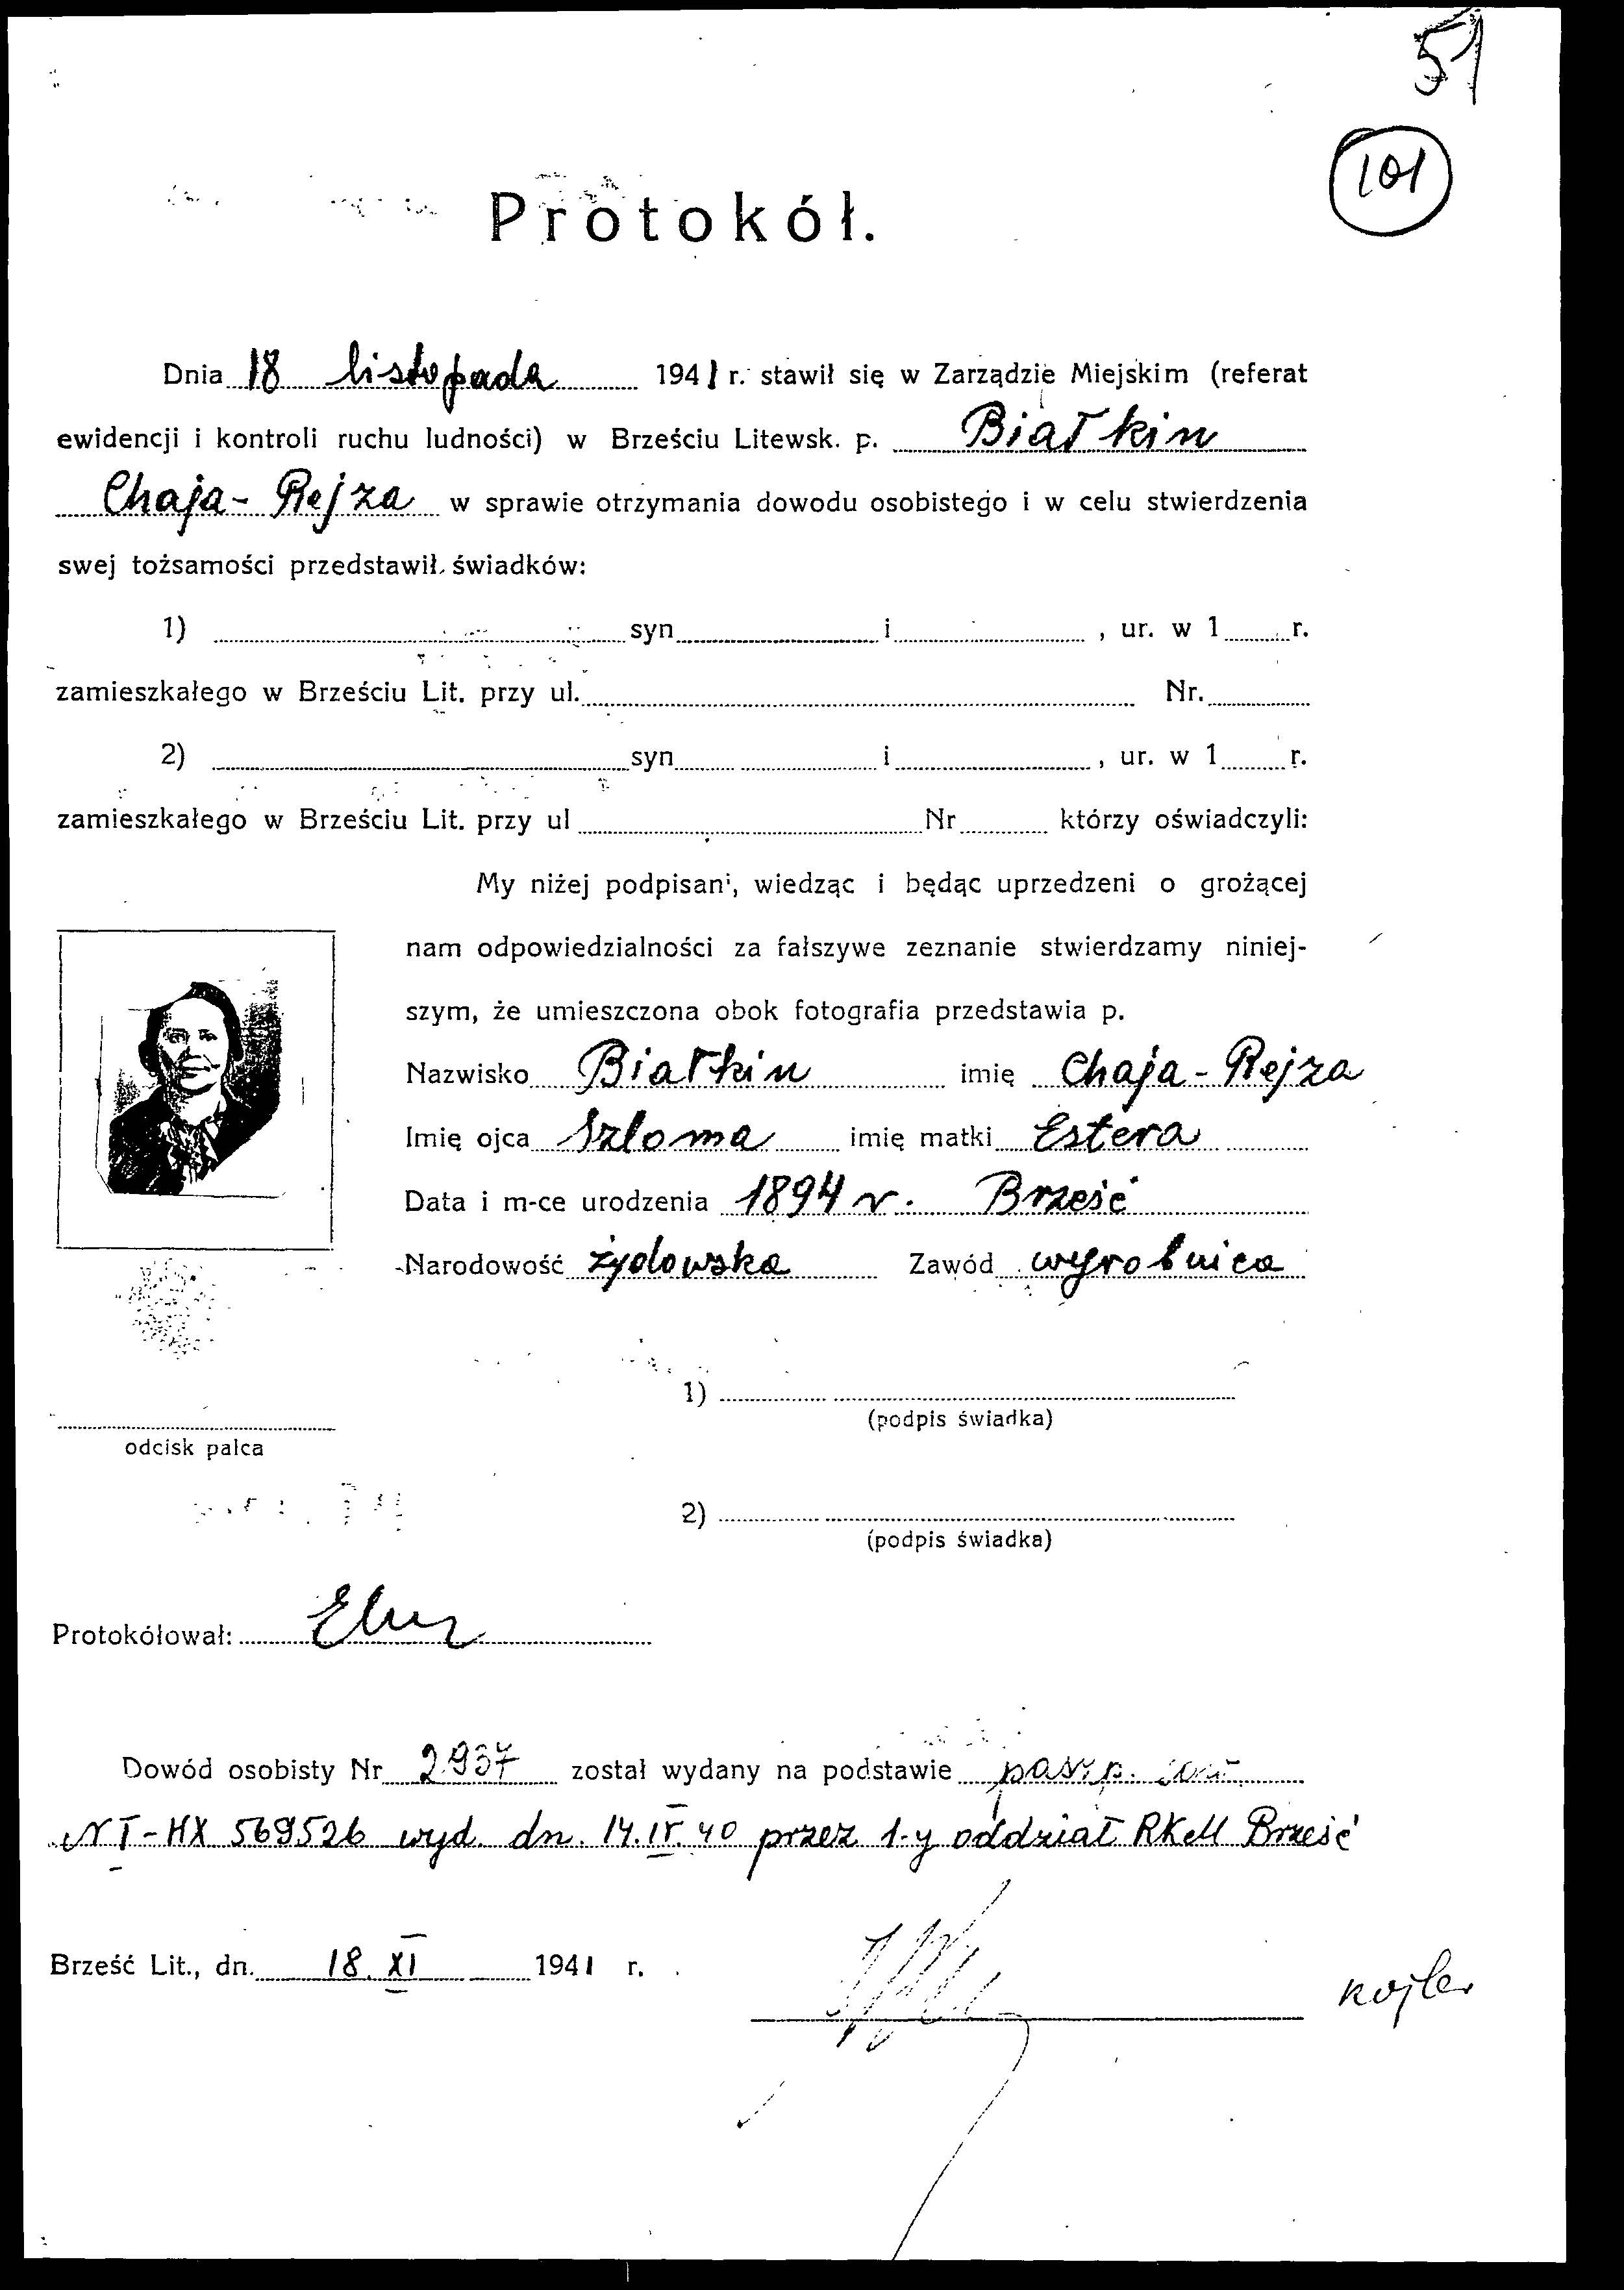 51
101
Protokół.
Dnia 18 listopada 1941 r. stawił się w Zarządzie Miejskim (referat
ewidencji i kontroli ruchu ludności) w Brześciu Litewsk. p. Białkin
Chaja-Rejza w sprawie otrzymania dowodu osobistego i w celu stwierdzenia
swej tożsamości przedstawił świadków:
1) syn i , ur. w 1 r.
zamieszkałego w Brześciu Lit. przy ul. Nr.
2) syn i , ur. w 1 r.
zamieszkałego w Brześciu Lit. przy ul Nr którzy oświadczyli:
My niżej podpisani, wiedząc i będąc uprzedzeni o grożącej
nam odpowiedzialności za fałszywe zeznanie stwierdzamy niniej-
szym, że umieszczona obok fotografia przedstawia p.
Nazwisko Białkin imię Chaja-Rejza
Imię ojca Szloma imię matki Estera
Data i m-ce urodzenia 1894 r. Brześć
Narodowość żydowska Zawód wyrobnica
1)
(podpis świadka)
odcisk palca
2)
(podpis świadka)
Protokółował:
Dowód osobisty Nr 2937 został wydany na podstawie paszp. sow.
NT-HX 569526 wyd. dn. 14.IV.40 przez 1-y oddział RKM Brześć
Brześć Lit., dn. 18.XI 1941 r.